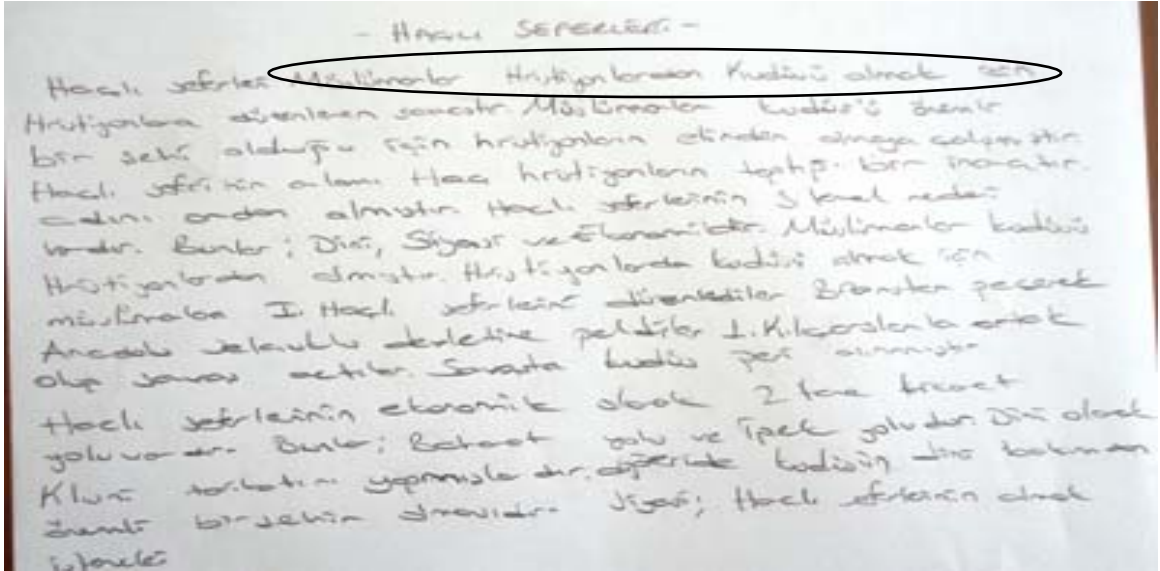 - HAÇLI SEFERLERİ -
Haçlı seferleri Müslümanlar Hristiyanlardan Kudüsü almak için
Hristiyanlara düzenlenen savaştır. Müslümanlar kudüs'ü önemli
bir şehi olduğu için hristiyanların elinden almaya çalışmıştır.
Haçlı seferinin anlamı Haç hristiyanların taptığı bir inançtır.
adını ondan almıştır. Haçlı seferlerinin 3 temel nedeni
vardır. Bunlar; Dini, Siyasi ve Ekonomiktir. Müslümanlar kudüsü
Hristiyanlardan almıştır. Hristiyanlarda kudüsü almak için
müslümanlara I. Haçlı seferlerini düzenlediler Bizanstan geçerek
Anadolu selçuklu devletine geldiler I. Kılıçarslanla ortak
olup savaş açtılar. Savaşta kudüs geri alınmıştır
Haçlı seferlerinin ekonomik olarak 2 tane ticaret
yolu vardır. Bunlar; Baharat yolu ve İpek yoludur. Dini olarak
Kluni tarikatını yapmışlardır. kudüsün dini bakımdan
önemli bir şehir olmasıdır. Siyasi; Haçlı seferlerinin almak